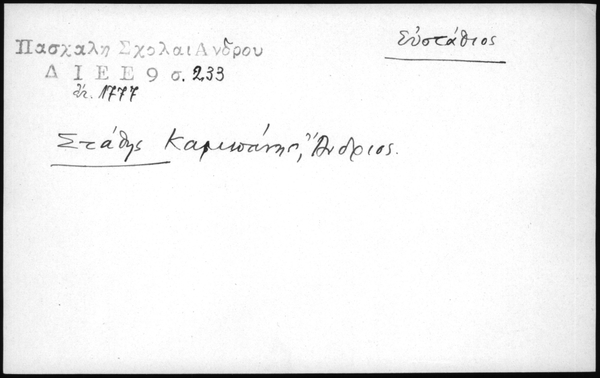 Εὐστάθιος
Πασχαλη Σχολαι Ανδρου
Δ Ι Ε Ε 9 σ. 233
ἔτ. 1777
Στάθης Καμπάνης, Ἄνδριος.